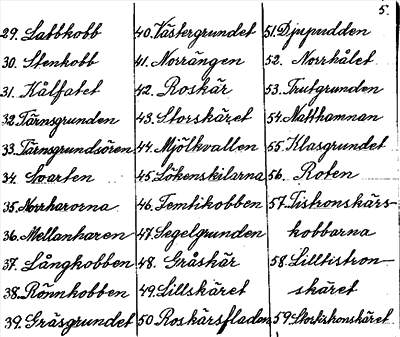 5.
29. Sattkobb
30. Stenkobb
31. Kålfatet
32. Tärnsgrunden
33. Tärnsgrundsören
34. Svarten
35. Norrharorna
36. Mellanharen
37. Långkobben
38. Rönnkobben
39. Gräsgrundet
40. Västergrundet
41. Norrängen
42. Roskär
43. Storskäret
44. Mjölkvallen
45. Lökenskilarna
46. Temtikobben
47. Segelgrunden
48. Gråskär
49. Lillskäret
50 Roskärsfladen
51. Djupudden
52. Norrhålet
53. Trutgrunden
54. Matthamnan
55. Klasgrundet
56. Roten
57. Tistronskärs-
kobbarna
58. Lilltistron-
skäret
59. Stortistronskäret